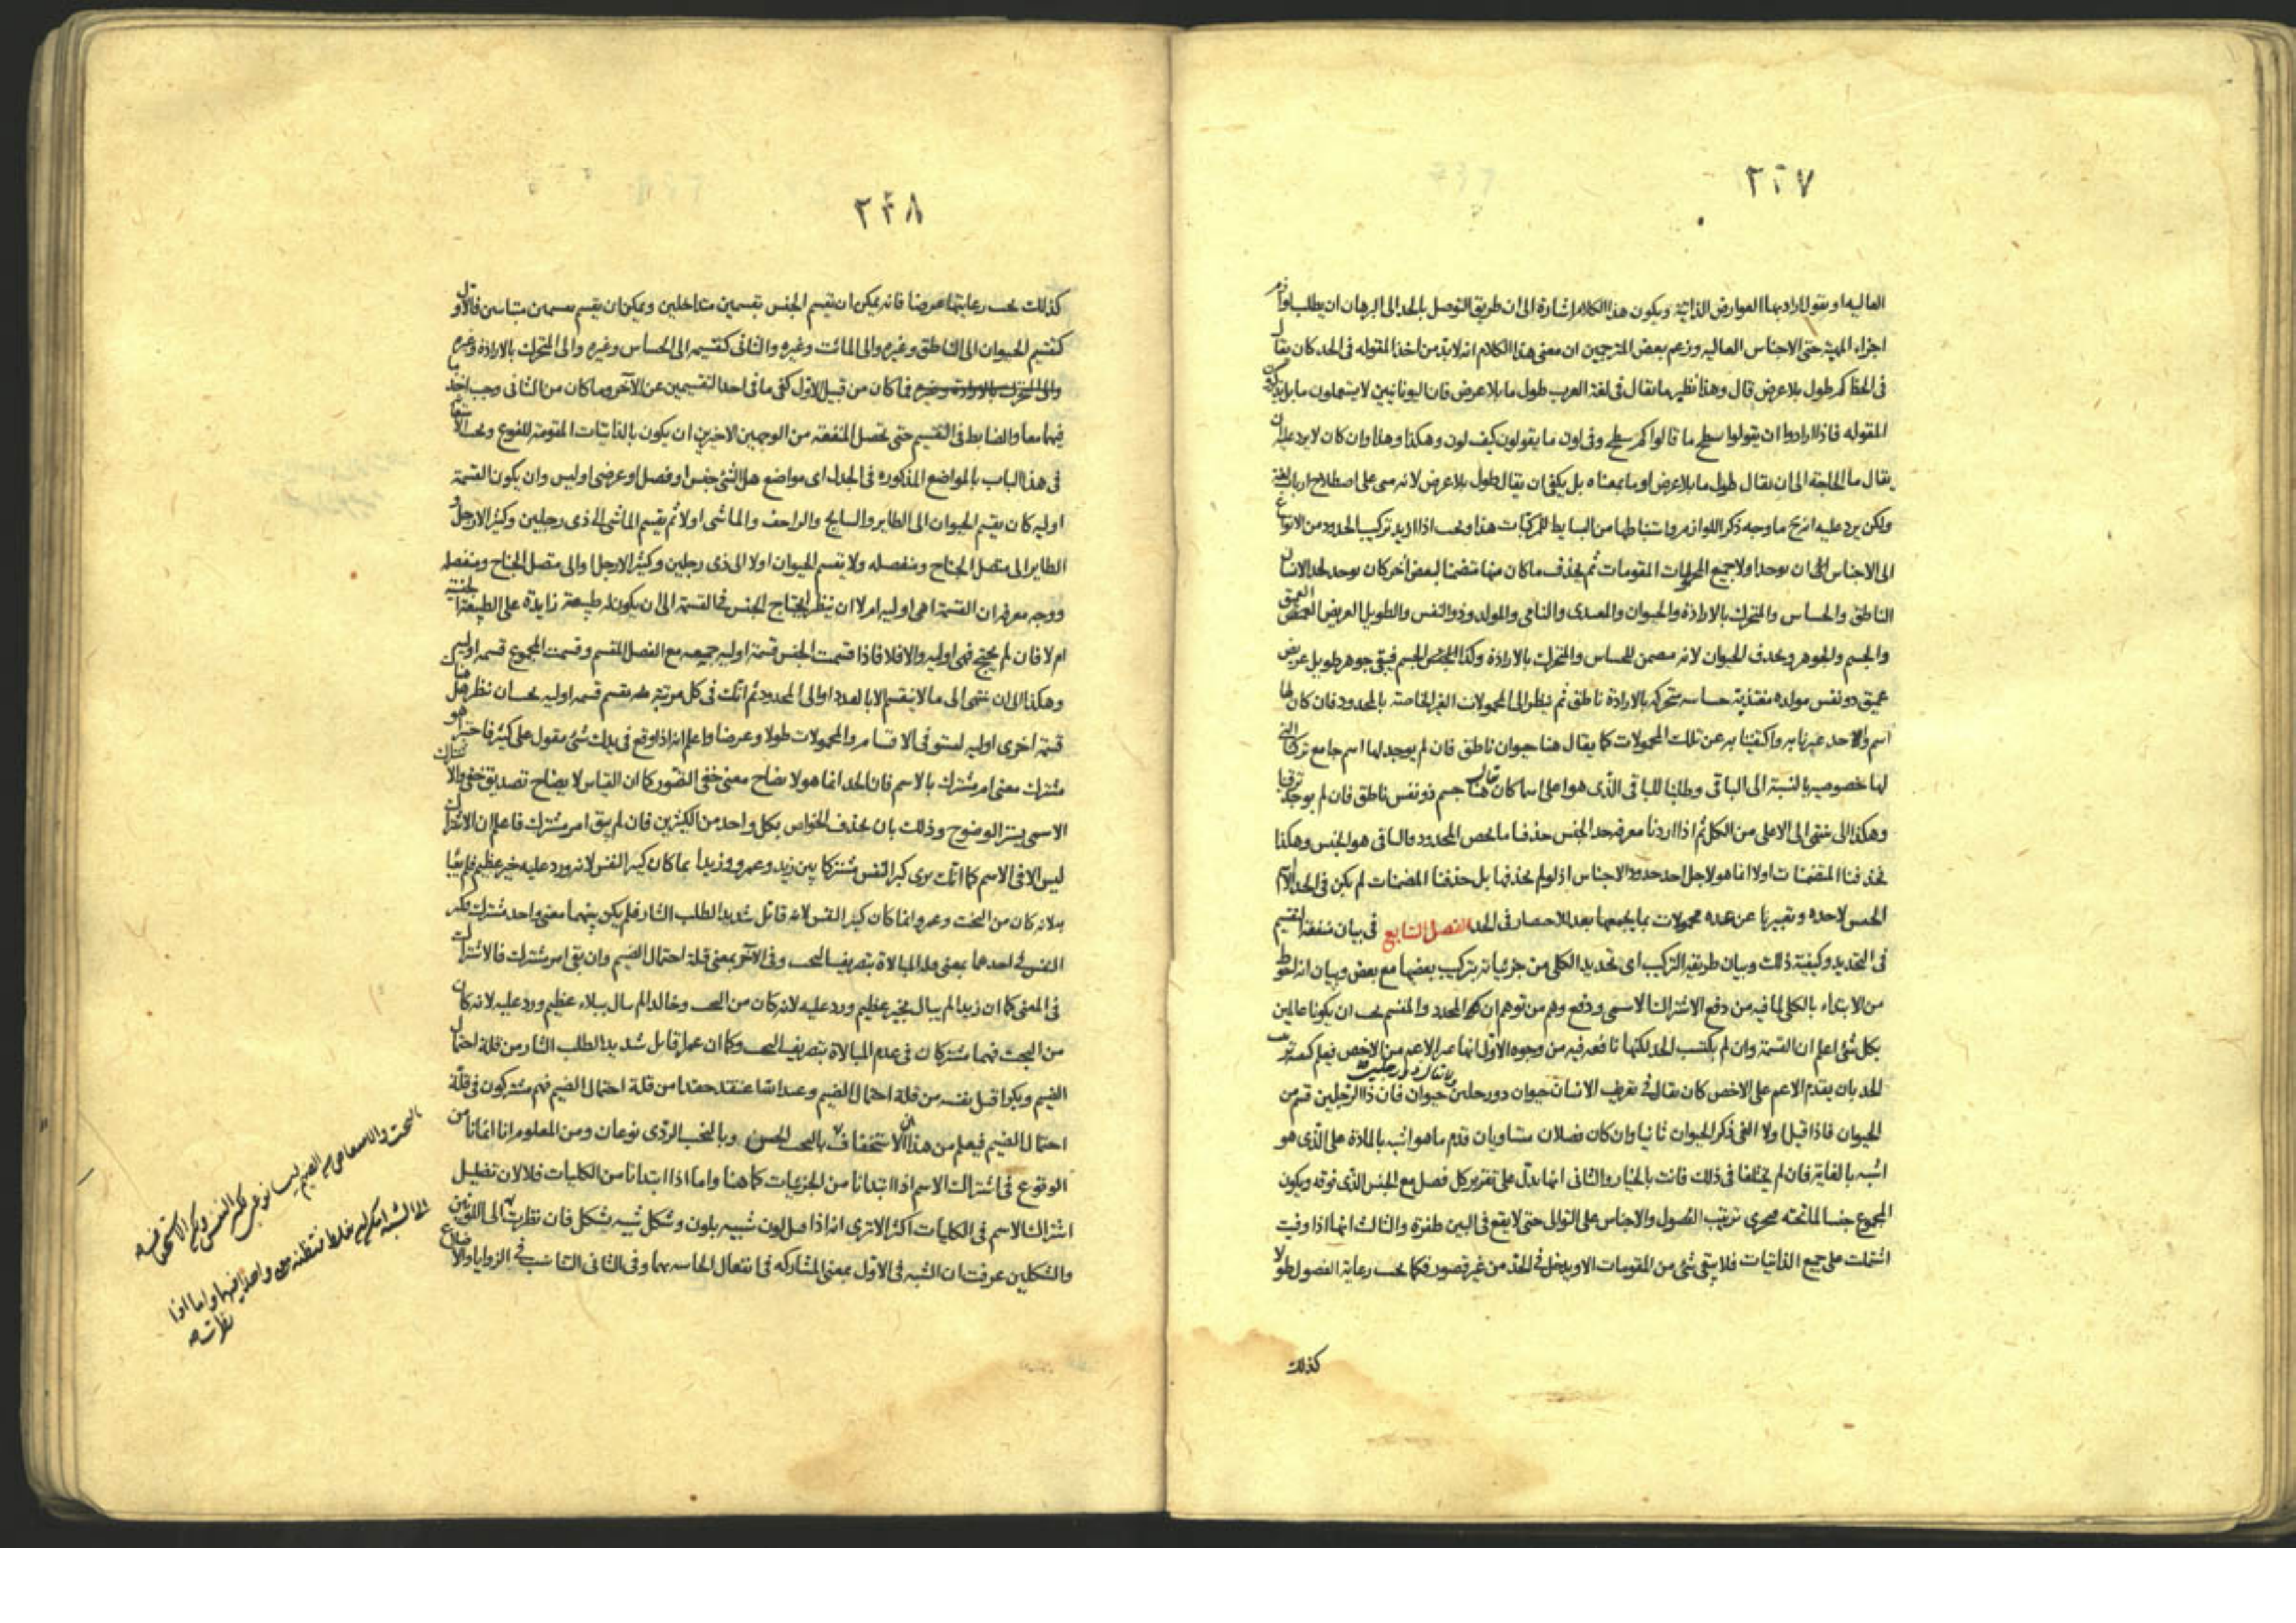 ٢٣٧
العاليه او يقول اراد بهما العوارض الذاتية ويكون هذا الكلام اشارة الى ان طريق التوصل بالحد الى البرهان ان يطلب اولا
اجزاء المهية حتى الاجناس العاليه وزعم بعض المترجمين ان معنى هذا الكلام انه لابد من اخذ المقوله فى الحد كان يقال
فى الخط كم طول بلا عرض قال وهذا نظير ما يقال فى لغة العرب طول ما بلا عرض فان اليونانيين لا يستعملون ما بل يذكرون
المقوله فاذا ارادوا ان يقولوا سطح ما قالوا كم سطح وفى لون ما يقولون كيف لون وهكذا وهذا وان كان لا يرد عليه ان
يقال ما الحاجة الى ان يقال طول ما بلا عرض او ما بمعناه بل يكفى ان يقال طول بلا عرض لانه مبنى على اصطلاح ارباب اللغة
ولكن يرد عليه انه ح ما وجه ذكر اللوازم واستنباطها من البسايط للمركبات هذا ويجب اذا اريد تركيب الحدود من الانواع
الى الاجناس ان يوجد اولا جميع المقومات ثم يحذف ما كان منها متضمنا لبعض آخر كان يوجد لحد الانسان
الناطق والحساس والمتحرك بالارادة والحيوان والمغتذى والنامى والمولد وذو النفس والطويل العريض العميق
والجسم والجوهر ويحذف الحيوان لانه مضمن للحساس والمتحرك بالارادة وكذا الجسم فيبقى جوهر طويل عريض
عميق ذو نفس مولده مغتذية حساسه متحركه بالارادة ناطق ثم ينظر الى المحمولات الغير الخاصة بالمحدود فان كان لها
اسم واحد عبرنا به واكتفينا به عن تلك المحمولات كما يقال هنا حيوان ناطق فان لم يوجد لها اسم جامع تركنا التى
لها خصوصيه بالنسبة الى الباقى وطلبنا للباقى الذى هو اعلى اسما كان يقال هنا جسم ذو نفس ناطق فان لم يوجد ترقينا
وهكذا الى ننتهى الى الاعلى من الكل ثم اذا اردنا معرفة حد الجنس حذفنا ما يخص المحدود فالباقى هو الجنس وهكذا
حذفنا المتضمنات اولا انما هو لاجل احد حدود الاجناس اذ لو لم نحذفها بل حذفنا المضمنات لم يكن فى الحد الا اسم
الجنس لا حده وتعبيرنا عن عده محمولات بما يجمعها بعد للاحصار فى الحد الفصل السابع فى بيان منفعة التقسيم
فى التحديد وكيفية ذلك وبيان طريقة التركيب اى تحديد الكلى من جزئياته بتركيب بعضها مع بعض وبيان انه احوط
من الابتداء بالكلى لما فيه من دفع الاشتراك الاسمى ودفع وهم من توهم ان المحدد والمقسم يجب ان يكونا عالمين
بكل شئ اعلم ان القسمة وان لم يكتسب الحد لكنها نافعه فيه من وجوه الاول انها تميز الاعم من الاخص فيعلم كيفية ترتيب
الحد بان يقدم الاعم على الاخص كان يقال فى تعريف الانسان حيوان ذو رجلين حيوان فان ذا الرجلين قسم من
الحيوان فاذا قيل اولا الغى ذكر الحيوان ثانيا وان كان فصلان متساويان قدم ما هو اشبه بالمادة على الذى هو
اشبه بالغاية فان لم يختلفا فى ذلك فانت بالخيار والثانى انها يدل على تقرير كل فصل مع الجنس الذى فوقه ويكون
المجموع جنسا لما تحته فيجرى ترتيب الفصول والاجناس على التوالى حتى لا يقع فى البين طفرة والثالث انها اذا وفيت
اشتملت على جميع الذاتيات فلا يبقى شئ من المقومات الا ويدخل فى الحد من غير قصور فكما يجب رعاية الفصول طولا
كذلك
٢٣٨
كذلك يجب رعايتها عرضا فانه يمكن ان تقسم الجنس بقسمين متداخلين ويمكن ان يقسم بقسمين متباينين فالاول
كتقسيم الحيوان الى الناطق وغيره والى المائت وغيره والثانى كتقسيمه الى الحساس وغيره والى المتحرك بالارادة وغيره
والى المتحرك بالارادة وغيره فما كان من قبيل الاول كفى ما فى احد التقسيمين عن الآخر وما كان من الثانى وجب اخذ ما
فيهما معا والضابط فى التقسيم حتى تحصل المنفعة من الوجهين الاخيرين ان يكون بالذاتيات المقومة للنوع ويجب الاستعانة
فى هذا الباب بالمواضع المذكوره فى الجدل اى مواضع هل الشئ جنس او فصل او عرضى اوليس وان يكون القسمة
اوليه كان يقسم الحيوان الى الطاير والسابح والزاحف والماشى اولا ثم يقسم الماشى الى ذى رجلين وكثير الارجل و
الطاير الى متصل الجناح ومنفصله ولا يقسم الحيوان اولا الى ذى رجلين وكثير الارجل والى متصل الجناح ومنفصله
ووجه معرفه ان القسمة اهى اوليه ام لا ان ينظر ايحتاج الجنس فى القسمة الى ان يكون له طبيعة زايدة على الطبيعة الجنسية
ام لا فان لم يحتج فهى اوليه والا فلا فاذا قسمت الجنس قسمة اوليه جمعه مع الفصل المقسم وقسمت المجموع قسمه اوليه
وهكذا الى ان ينتهى الى ما لا ينقسم الا بالعدد او الى المحدود ثم انك فى كل مرتبة تقسم قسمه اوليه يجب ان تنظر هل هناك
قسمة اخرى اوليه ليستوفى الاقسام والمحمولات طولا وعرضا واعلم انه اذا وقع فى يدك شئ مقول على كثير فاختبر هو
مشترك معنى ام مشترك بالاسم فان الحد انما هو لايضاح معنى خفى التصور كما ان القياس لايضاح تصديق خفى والاشتراك
الاسمى يستر الوضوح وذلك بان يحذف الخواص بكل واحد من الكثيرين فان لم يبق امر مشترك فاعلم ان الاشتراك
ليس الا فى الاسم كما انك ترى كبر النفس مشتركا بين زيد وعمرو وزيد انما كان كبير النفس لانه ورد عليه خبر عظيم فلم يعبا
به لانه كان من البخت وعمرو انما كان كبير النفس لانه قاتل شديد الطلب الثار فلم يكن بينهما معنى واحد مشترك فكبر
النفس فى احدهما بمعنى قله المبالاة بتصريف البخت وفى الآخر بمعنى قلة احتمال الضيم وان بقى امر مشترك فالاشتراك
فى المعنى كما ان زيدا لم يبال بخبر عظيم ورد عليه لانه كان من البخت وخالدا لم يبال ببلاء عظيم ورد عليه لانه كان
من البخت فهما مشتركان فى عدم المبالاة بتصريف البخت وكما ان عمرا قاتل شديد الطلب الثار من قلة احتمال
الضيم وبكرا قتل نفسه من قلة احتمال الضيم وعبد الله حقد حقدا من قلة احتمال الضيم فهم مشتركون فى قلة
احتمال الضيم فيعلم من هذا ان الاستخفاف بالبخت الحسن وبالبخت الردى نوعان ومن المعلوم انا انما نامن
الوقوع فى اشتراك الاسم اذا ابتدانا من الجزئيات كما هنا واما اذا ابتدانا من الكليات فلا لان تضليل
اشتراك الاسم فى الكليات اكثر الا ترى انه اذا قيل لون شبيه بلون وشكل شبيه بشكل فان نظرت الى اللونين
والشكلين عرفت ان الشبه فى الاول بمعنى المشاركه فى انفعال الحاسه بهما وفى الثانى التناسب فى الزوايا والاضلاع